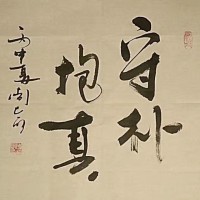 守朴
抱真
丙申夏